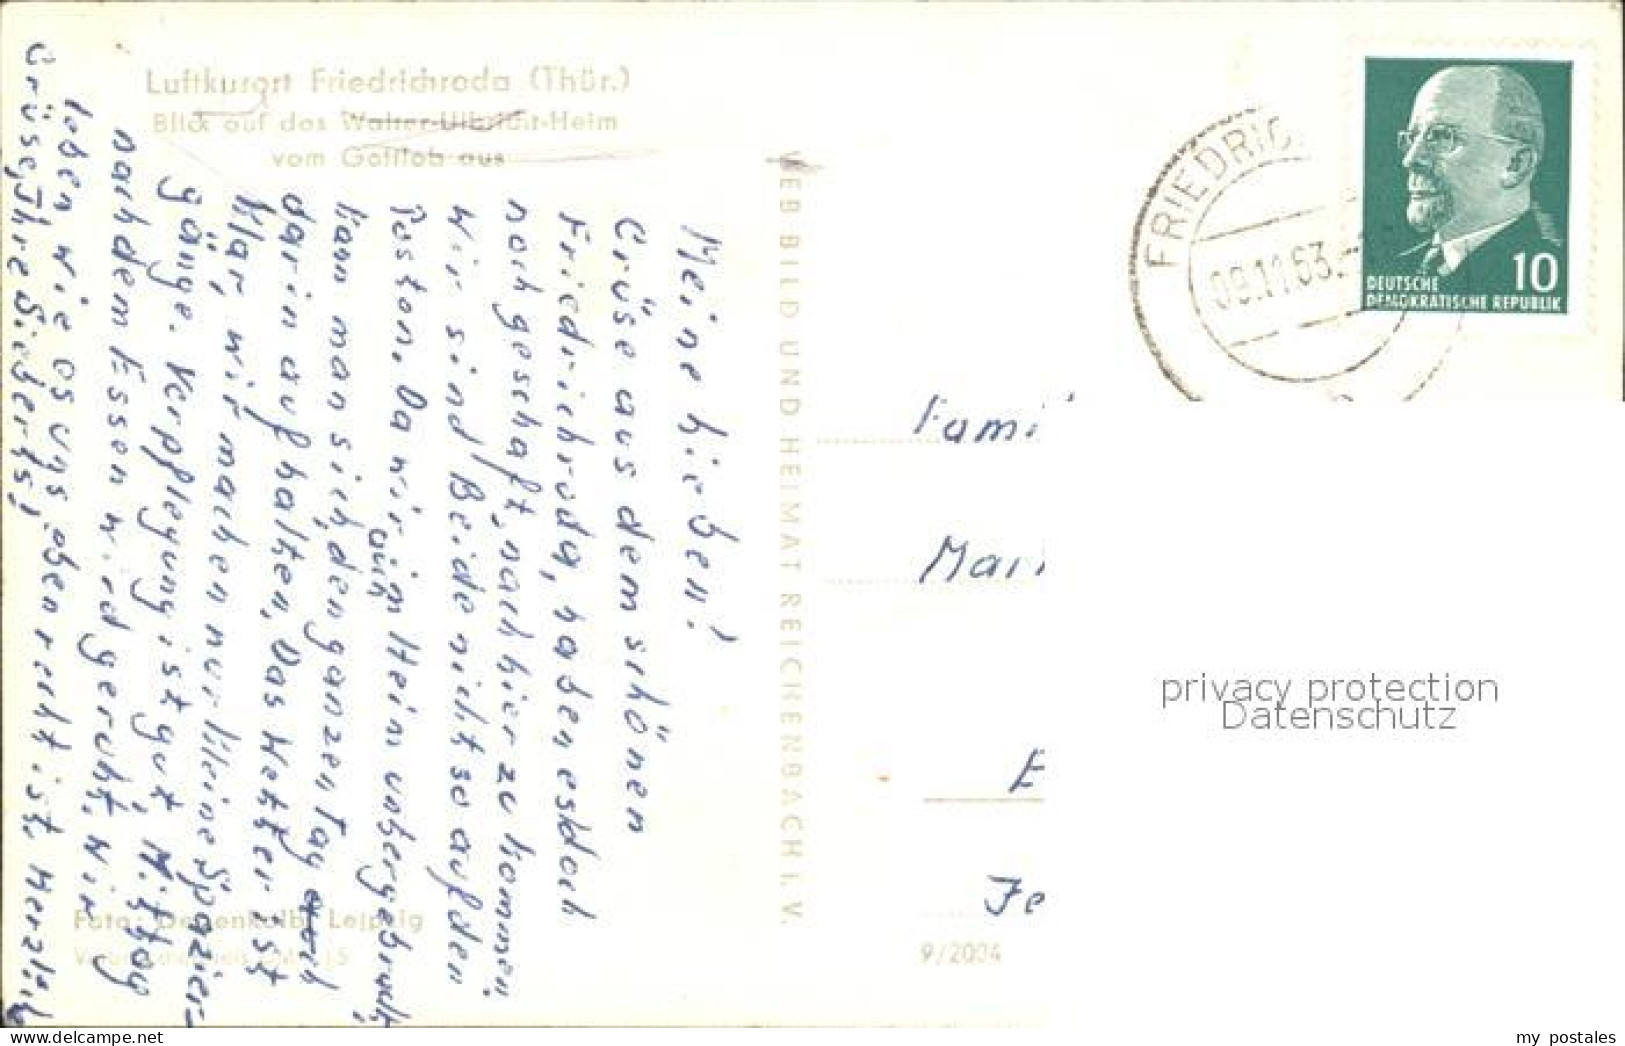 Luftkurort Friedrichroda (Thür.)
Blick auf das Walter-Ulbricht-Heim
vom Gottlob aus
Meine Lieben!
Grüse aus dem schönen
Friedrichroda, haben es doch
noch geschaft, nach hier zu kommen
wir sind Beide nicht so auf den
Posten. Da wir im Heim untergebracht,
kann man sich auch den ganzen Tag
darin aufhalten, Das Wetter ist
klar, wir machen nur kleine Spazier-
gänge. Verpflegung ist gut, Mittag
nach dem Essen wird geruht, Wir
loben wie es uns eben recht ist. Herzlich
Grüse, Ihre
VEB BILD UND HEIMAT REICHENBACH I. V.
FRIEDRIC
09.11.63.
10
DEUTSCHE
DEMOKRATISCHE REPUBLIK
Fami
Mar
E
Je
privacy protection
Datenschutz
Foto: Leipzig
9/2004
my postales